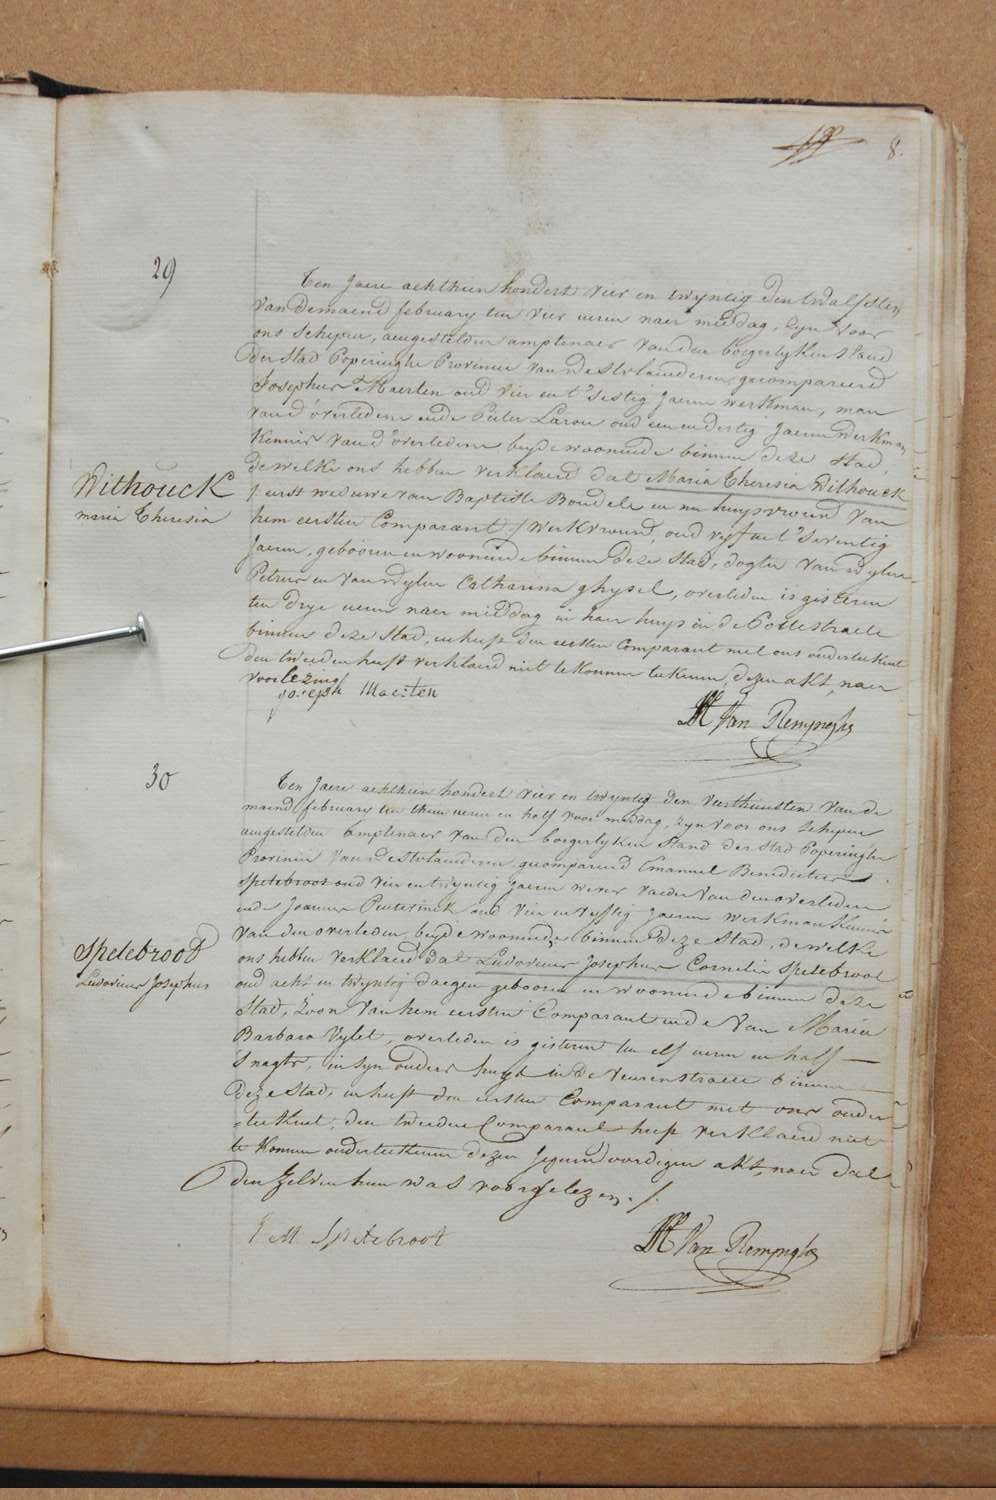 8.
29
Ten Jaere achthien hondert vier en twyntig den twalfsten
van de maend february ten vier ueren naer middag, zyn voor
ons schepen, aengestelden amptenaer van den borgerlyken stand
der Stad Poperinghe Provincie van Westvlaenderen gecompareerd
Josephus Maerten oud vier en t'sestig Jaeren werkman, man
van d'overledene ende Pieter Larou oud een en dertig Jaeren werkman
kennis van d'overledene beyde woonende binnen deze Stad,
dewelke ons hebben verklaerd dat Maria Theresia Withouck
Withouck
maria Theresia
/ eerst weduwe van Baptiste Boudele en nu huysvrouw van
hem eersten Comparant / werkvrouw, oud vyf en t'seventig
Jaeren, gebooren en woonende binnen deze Stad, dogter van wylen
Petrus en van wylen Catharina ghysel, overleden is gisteren
ten drye ueren naer middag in haer huys in de Pottestraete
binnen deze Stad, en heeft den eersten Comparant met ons onderteekent
den tweeden heeft verklaerd niet te konnen teekenen, dezen akt, naer
voorlezing
Joseph Maerten
30
Ten Jaere achthien hondert vier en twyntig den veerthiensten van de
maend february ten thien ueren en half voor middag, zyn voor ons schepen
aengestelden amptenaer van den borgerlyken Stand der Stad Poperinghe
Provincie van Westvlaenderen gecompareerd Emanuel Benedictus
Spetebroot oud vier en twyntig Jaeren wever vader van den overleden
ende Joannes Pieterinck oud vier en vyftig Jaeren werkman kennis
van den overleden, beyde woonende binnen deze Stad, dewelke
ons hebben verklaerd dat Ludovicus Josephus Cornelis Spetebroot
Spetebroot
Ludovicus Josephus
oud acht en twyntig daegen gebooren en woonende binnen deze
Stad, Zoon van hem eersten Comparant ende van Maria
Barbara Vylet, overleden is gisteren ten elf ueren en half
snagts, in syn ouders huys in de Veurenstraete binnen
deze Stad, en heeft den eersten Comparant met ons onder
teekent, den tweeden Comparant heeft verklaerd niet
te konnen onderteekenen dezen Jegenwoordigen akt, naer dat
den zelven hun was voorgelezen ./.
E M Spetebroot